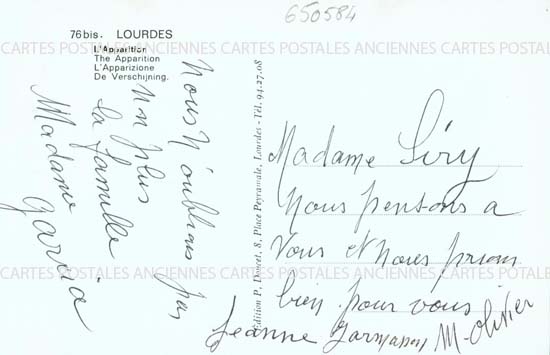 650584
76 bis. LOURDES
L'Apparition
The Apparition
L'Apparizione
De Verschijning.
CARTES POSTALES ANCIENNES CARTES POSTALES ANCIENNES CARTES POSTALES
Nous N'oublions pas
non plus
la famille
Madame
garcia
Edition P. Doucet, 8, Place Peyramale, Lourdes - Tél. 94.27.08
Madame Séry
Nous pensons a
Vous et Nous prions
bien pour vous
Jeanne M-Olivier
CARTES POSTALES ANCIENNES CARTES POSTALES ANCIENNES CARTES POSTALES